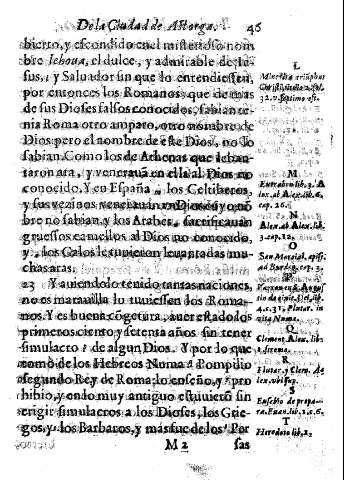 De la Ciudad de Astorga. 46
bierto, y escondido en el misterioso nom
bre Iehoua, el dulce, y admirable de Ie-
sus, y Saluador sin que lo entendiessen,
por entonces los Romanos, que de mas
de sus Dioses falsos conocidos, sabian te-
nia Roma otro amparo, otro nombre de
Dios pero el nombre de este Dios, no lo
sabian. Como los de Athenas que leban-
taron ara, y venerauā en ella al Dio no
conocido. Y en España, los Celtiberos,
y sus vezinos venerauan vn Dios cuyo nō
bre no sabian, y los Arabes, sacrificauan
gruessos camellos al Dios no conocido,
y, los Galos le tuuieron leuantadas mu-
chas aras.
23 Y auiendolo tenido tantas naciones,
no es marauilla lo tuuiessen los Roma-
nos. Y es buena cōgetura, auer estado los
primeros ciento y setenta años sin tener
simulacro de algun Dios. Y por lo que
tomò de los Hebreos Numa Pompilio
segundo Rey de Roma, lo enseño, y pro
hibio, y en do muy antiguo estuuierō sin
erigir simulacros a los Dioses, los Grie-
gos, y los Barbaros, y mas fue de los Por
M 2 sas
L
32. v. septimo
M
lib. 3. A
lex. ab Alex. lib. 6.
cap. 26.
N
Alex. ab Alex. lib.
3. cap. 12.
O
San Marcial, epis.
ad Burdeg. cap. 3.
August.
de ciuit. Dei, lib.
4. c. 31. Plutar. in
vita Numa.
Q
Clement. Alex. lib.
1. stroma.
R
Plutar. y Clem. A-
lex. vbi sup.
S
Eusebio de prepa-
ra. Euan. lib. 1. c. 6.
T
Herodoto lib. 2.